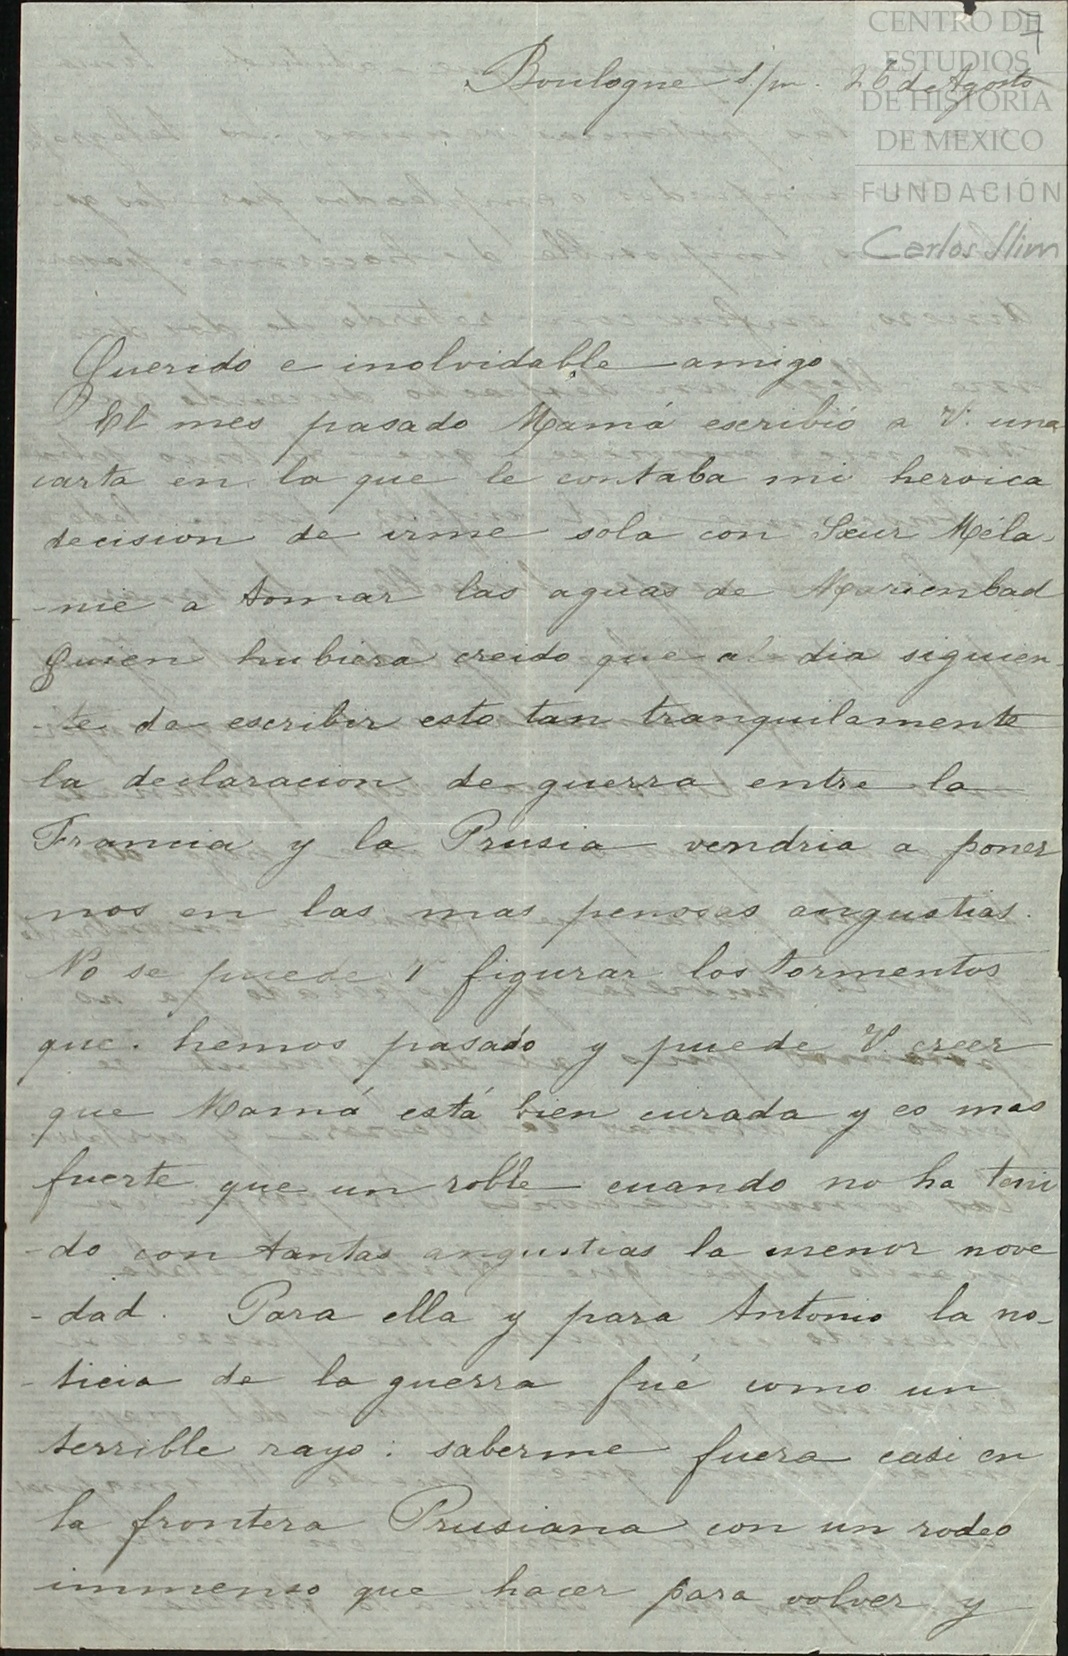 CENTRO DE
ESTUDIOS
DE HISTORIA
DE MEXICO
FUNDACIÓN
Carlos Slim
7
Boulogne s/m. 26 de Agosto
Querido e inolvidable amigo
El mes pasado Mamá escribió a V. una
carta en la que le contaba mi heroica
decision de irme sola con Sœur Méla-
-nie a tomar las aguas de Marienbad
Quien hubiera creido que al dia siguien-
-te de escribir esto tan tranquilamente
la declaracion de guerra entre la
Francia y la Prusia vendria a poner
nos en las mas penosas angustias.
No se puede V figurar los tormentos
que hemos pasado y puede V. creer
que Mamá está bien curada y es mas
fuerte que un roble cuando no ha teni
-do con tantas angustias la menor nove
-dad. Para ella y para Antonio la no-
-ticia de la guerra fué como un
terrible rayo: saberme fuera casi en
la frontera Prusiana con un rodeo
immenso que hacer para volver y